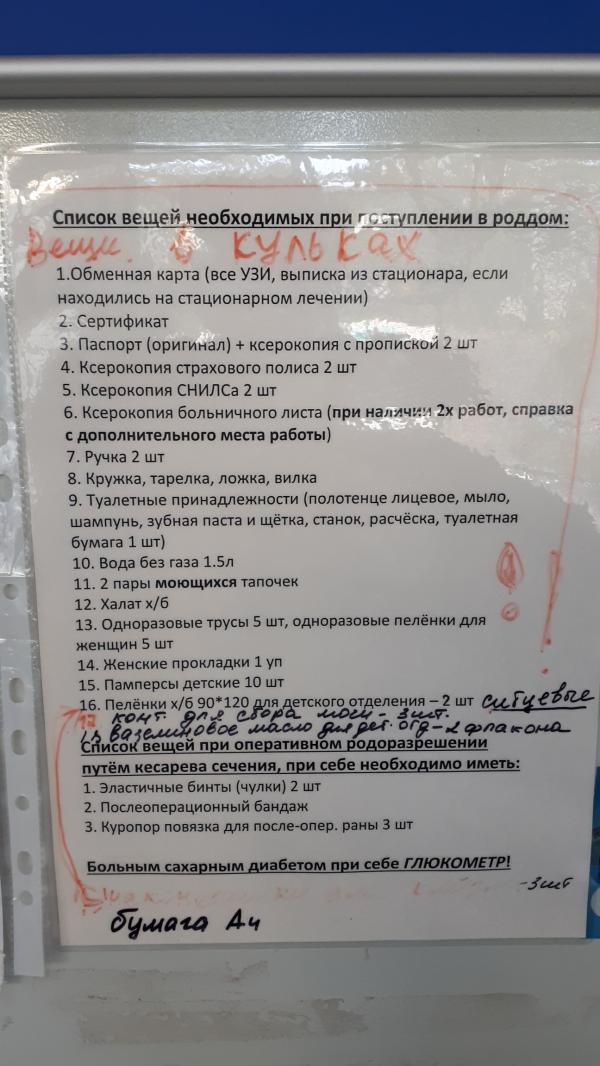 Список вещей необходимых при поступлении в роддом:
Вещи в кульках
1.Обменная карта (все УЗИ, выписка из стационара, если
находились на стационарном лечении)
2. Сертификат
3. Паспорт (оригинал) + ксерокопия с пропиской 2 шт
4. Ксерокопия страхового полиса 2 шт
5. Ксерокопия СНИЛСа 2 шт
6. Ксерокопия больничного листа (при наличии 2х работ, справка
с дополнительного места работы)
7. Ручка 2 шт
8. Кружка, тарелка, ложка, вилка
9. Туалетные принадлежности (полотенце лицевое, мыло,
шампунь, зубная паста и щётка, станок, расчёска, туалетная
бумага 1 шт)
10. Вода без газа 1.5л
11. 2 пары моющихся тапочек
12. Халат х/б
13. Одноразовые трусы 5 шт, одноразовые пелёнки для
женщин 5 шт
14. Женские прокладки 1 уп
15. Памперсы детские 10 шт
16. Пелёнки х/б 90*120 для детского отделения – 2 шт ситцевые
17 конт. для сбора мочи - 3 шт.
18 вазелиновое масло для дет. отд - 2 флакона
Список вещей при оперативном родоразрешении
путём кесарева сечения, при себе необходимо иметь:
1. Эластичные бинты (чулки) 2 шт
2. Послеоперационный бандаж
3. Куропор повязка для после-опер. раны 3 шт
Больным сахарным диабетом при себе ГЛЮКОМЕТР!
- 3 шт
бумага А4